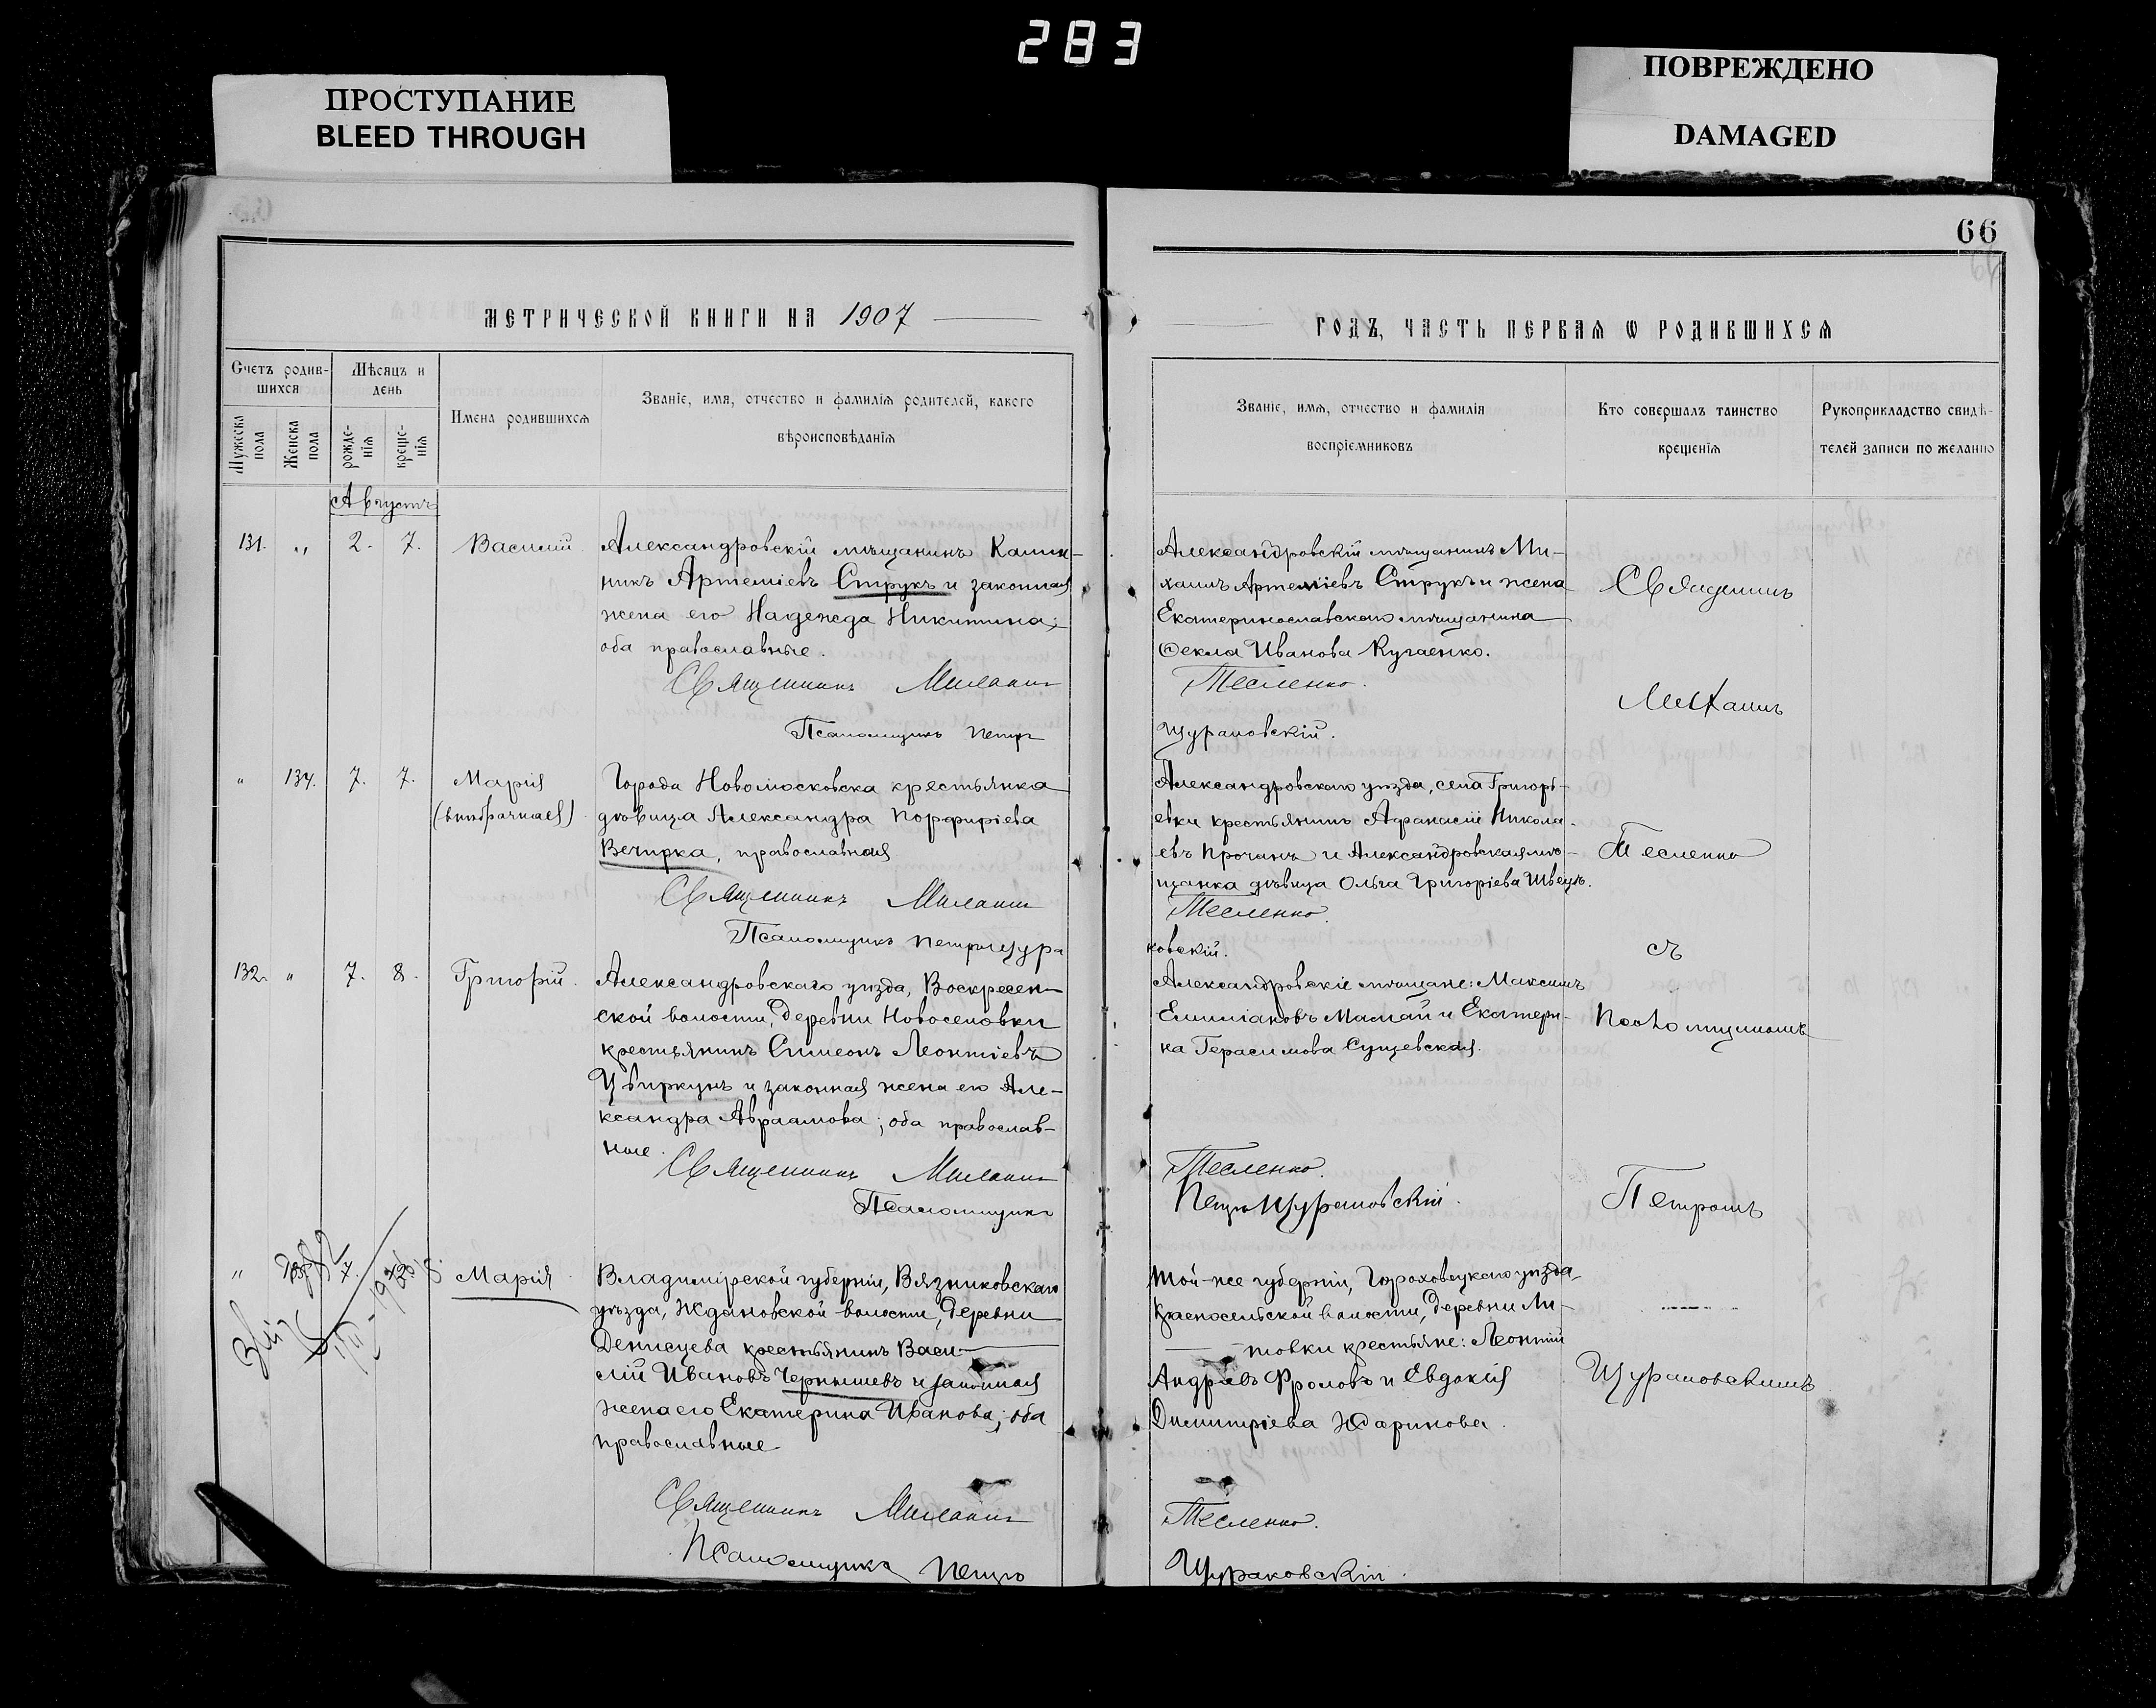 283
ПРОСТУПАНИЕ
BLEED THROUGH
ПОВРЕЖДЕНО
DAMAGED
66
МЕТРИЧЕСКОЙ КНИГИ НА 1907
ГОДЪ, ЧАСТЬ ПЕРВАЯ Ѡ РОДИВШИХСЯ
Счетъ родив-
шихся
Мѣсяцъ и
день
Имена родившихся
Званіе, имя, отчество и фамилія родителей, какого
вѣроисповѣданія
Мужеска
пола
Женска
пола
рожде-
нія
креще-
нія
Званіе, имя, отчество и фамилія
воспріемниковъ
Кто совершалъ таинство
крещенія
Рукоприкладство свидѣ-
телей записи по желанію
Августъ
131. „ 2. 7. Василій
Александровскій мѣщанинъ Калин-
никъ Артеміевъ Струкъ и законная
жена его Надежда Никитина;
оба православные.
Священникъ Михаилъ
Псаломщикъ Петръ
Александровскій мѣщанинъ Ми-
хаилъ Артеміевъ Струкъ и жена
Екатеринославскаго мѣщанина
Ѳекла Иванова Кугаенко.
Тесленко.
Щураковскій.
Священникъ
Михаилъ
„ 134. 7. 7. Марія
(внѣбрачная)
Города Новомосковска крестьянка
дѣвица Александра Порфиріева
Вечирка, православная
Священникъ Михаилъ
Псаломщикъ Петръ Щура
Александровскаго уѣзда, села Григорь-
евки крестьянинъ Афанасій Никола-
евъ Прочанъ и Александровская мѣ-
щанка дѣвица Ольга Григоріева Швецъ.
Тесленко.
ковскій.
Тесленко
съ
132. „ 7. 8. Григорій.
Александровскаго уѣзда, Воскресен-
ской волости, деревни Новоселовки
крестьянинъ Симеонъ Леонтіевъ
Цвиркунъ и законная жена его Але-
ксандра Авраамова; оба православ-
ные.
Священникъ Михаилъ
Псаломщикъ
Александровскіе мѣщане: Максимъ
Емиліановъ Мамай и Екатери-
на Герасимова Сущевская.
Тесленко.
Петръ Щураковскій.
Псаломщикомъ
Петромъ
„ 7. 8. Марія
Владимірской губерніи, Вязниковскаго
уѣзда, Ждановской волости, деревни
Денисцева крестьянинъ Васи-
лій Ивановъ Чернышевъ и законная
жена его Екатерина Иванова; оба
православные.
Священникъ Михаилъ
Псаломщикъ Петръ
Той-же губерніи, Гороховецкаго уѣзда,
Красносельской волости, деревни Ли-
товки крестьяне: Леонтій
Андреевъ Фроловъ и Евдокія
Димитріева Жаринова.
Тесленко.
Щураковскій.
Щураковскимъ